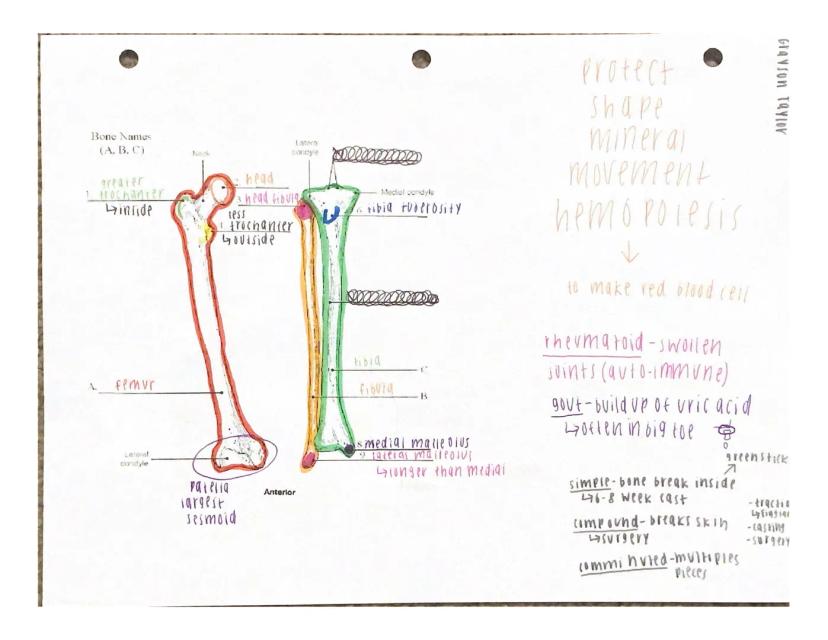 Grayson Taylor
Bone Names
(A, B, C)
Neck
greater
1. trochanter
↳inside
2. head
3. head fibula
less
trochanter
↳outside
A. femur
Lateral
condyle
patella
largest
sesmoid
Anterior
Lateral
condyle
Medial condyle
tibia tuberosity
tibia
C
fibula
B
8 medial malleolus
9. lateral malleolus
↳longer than medial
protect
shape
mineral
movement
hemopoiesis
↓
to make red blood cell
rhevmatoid-swollen
joints (auto-immune)
gout-build up of uric acid
↳often in big toe
greenstick
simple-bone break inside
↳6-8 week cast
compound-breaks skin
↳surgery
comminuted-multiples
pieces
-casting
-surgery